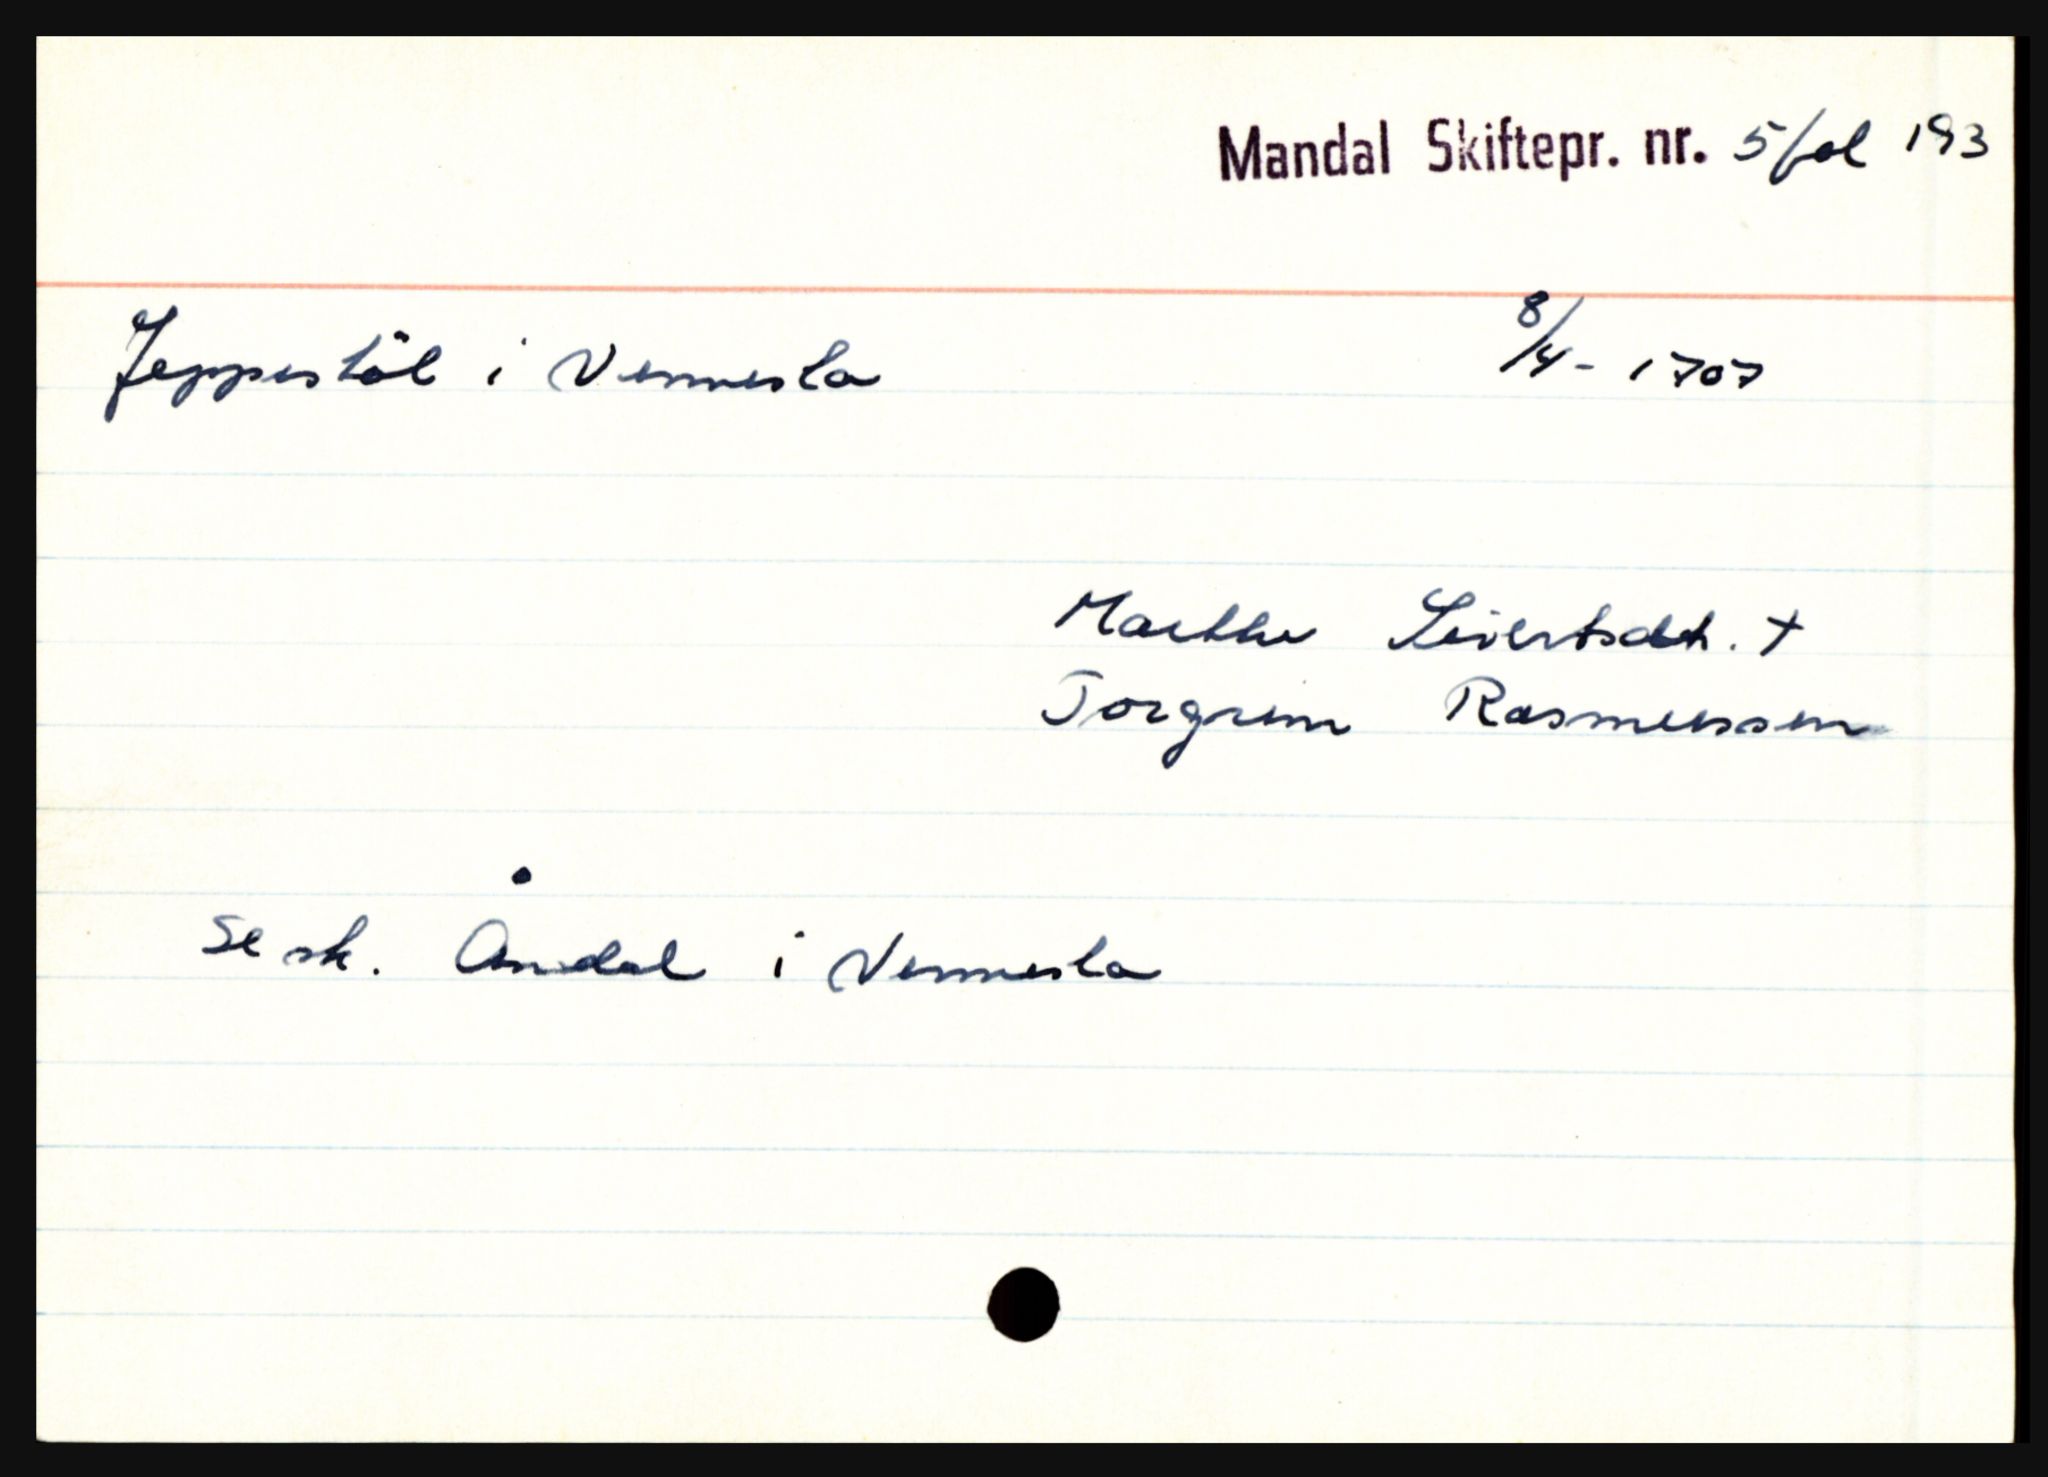 Mandal Skiftepr. nr. 5/fol 193
Jeppestöl i Vennesla 8/4 - 1707
Marthe Sivertsdtr. +
Torgrim Rasmussen
Se sk. Åndal i Vennesla